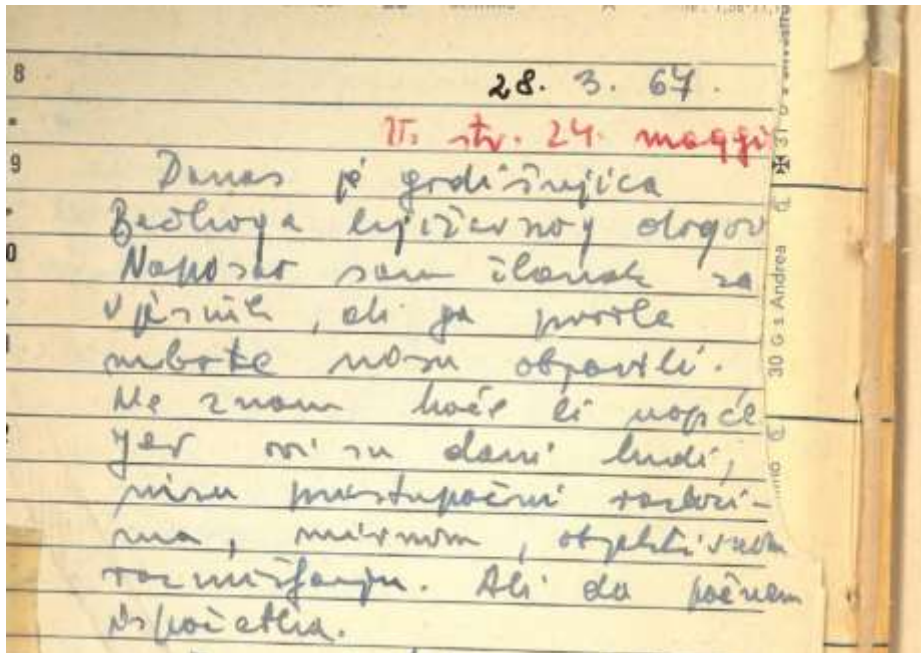 28. 3. 67.
II. str. 24. maggi
Danas je godišnjica
Bečkoga književnog dogov
Napisao sam članak za
Vjesnik, ali ga prošle
subote nisu objavili.
Ne znam hoće li uopće
jer ovi su dani ludi,
nisu pristupačni razlozi-
ma, mirnom, objektivnom
razmišljanju. Ali da počnem
ispočetka.
8
9
0
31 G s
30 G s Andrea